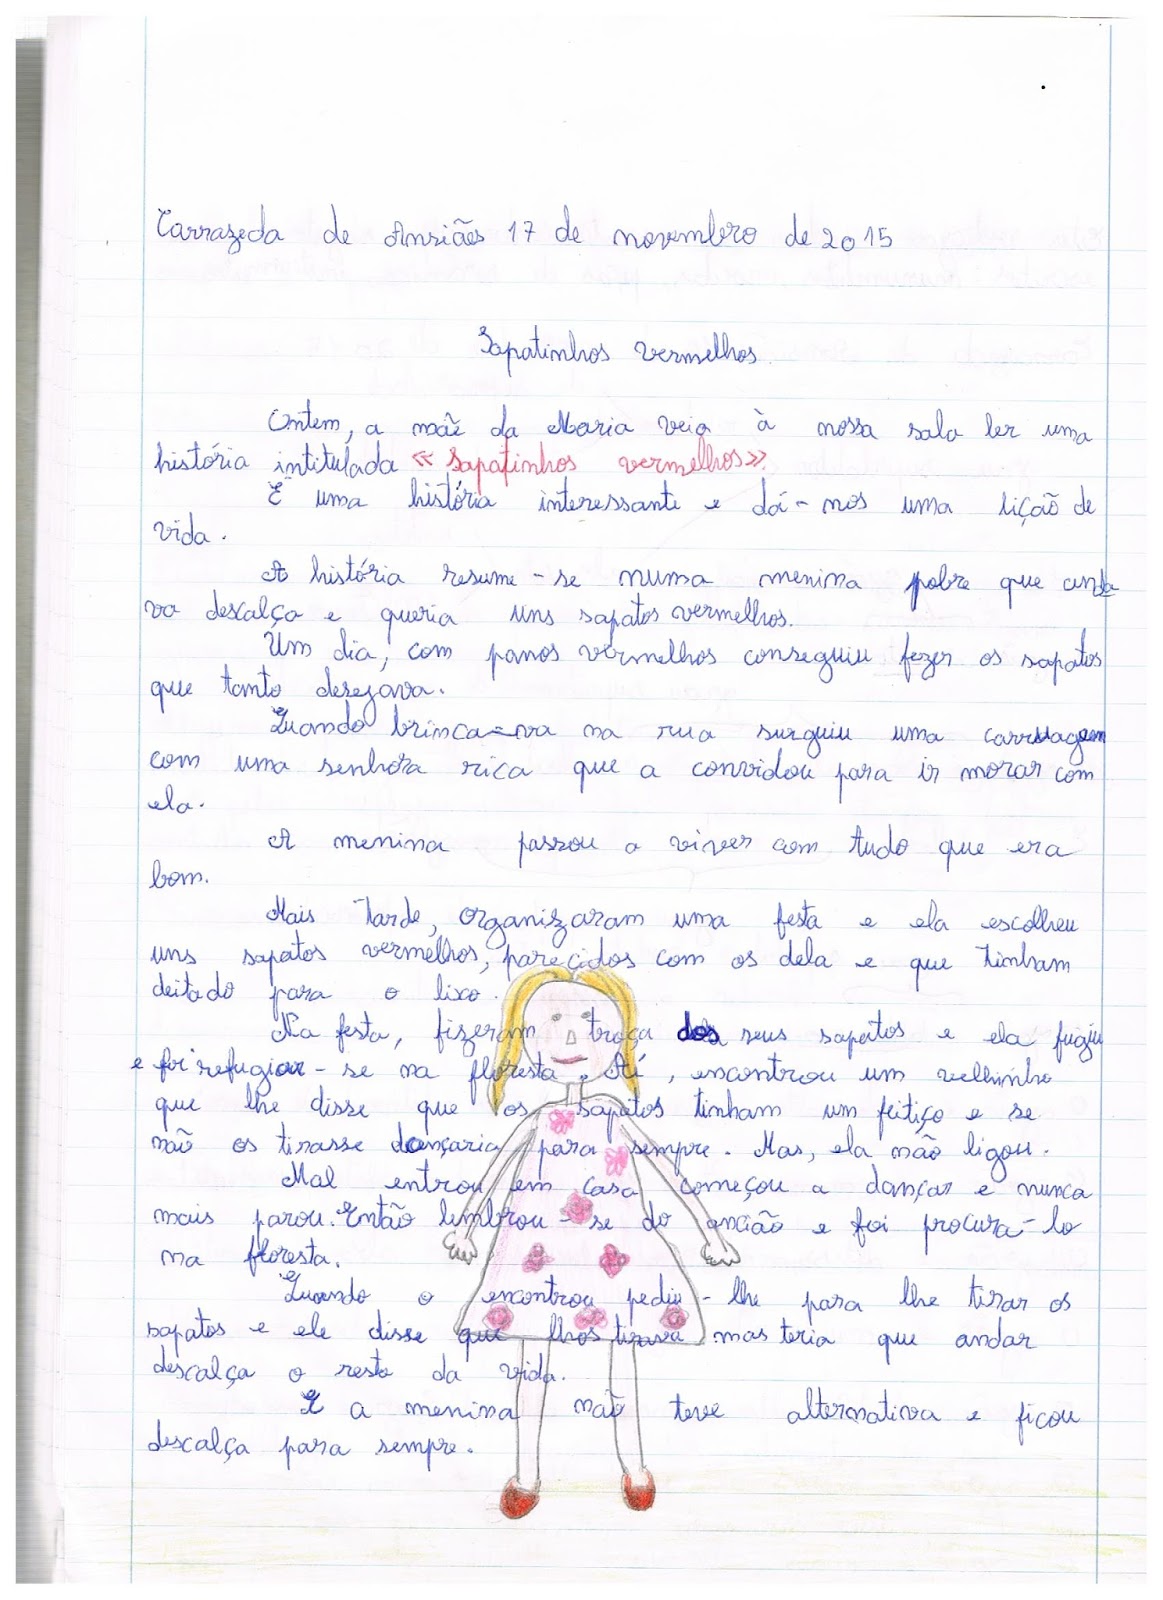 Carrazeda de Ansiães 17 de novembro de 2015
Sapatinhos vermelhos.
Ontem, a mãe da Maria veio à nossa sala ler uma
história intitulada «Sapatinhos vermelhos»
É uma história interessante e dá-nos uma lição de
vida.
A história resume-se numa menina pobre que anda
va descalça e queria uns sapatos vermelhos.
Um dia, com panos vermelhos conseguiu fazer os sapatos
que tanto desejava.
Quando brinca-va na rua surguiu uma carruagem
com uma senhora rica que a convidou para ir morar com
ela.
A menina passou a viver com tudo que era
bom.
Mais tarde, organizaram uma festa e ela escolheu
uns sapatos vermelhos, pareçidos com os dela e que tinham
deitado para o lixo.
Na festa, fizeram troça dos seus sapatos e ela fugiu
e foi refugiar-se na floresta. Aí, encontrou um velhinho
que lhe disse que os sapatos tinham um feitiço e se
não os tirasse dançaria para sempre. Mas, ela não ligou.
Mal entrou em casa começou a dançar e nunca
mais parou. Então lembrou-se do ancião e foi procura-lo
na floresta.
Quando o encontrou pediu-lhe para lhe tirar os
sapatos e ele disse que lhos tirava mas teria que andar
descalça o resto da vida.
E a menina não teve alternativa e ficou
descalça para sempre.